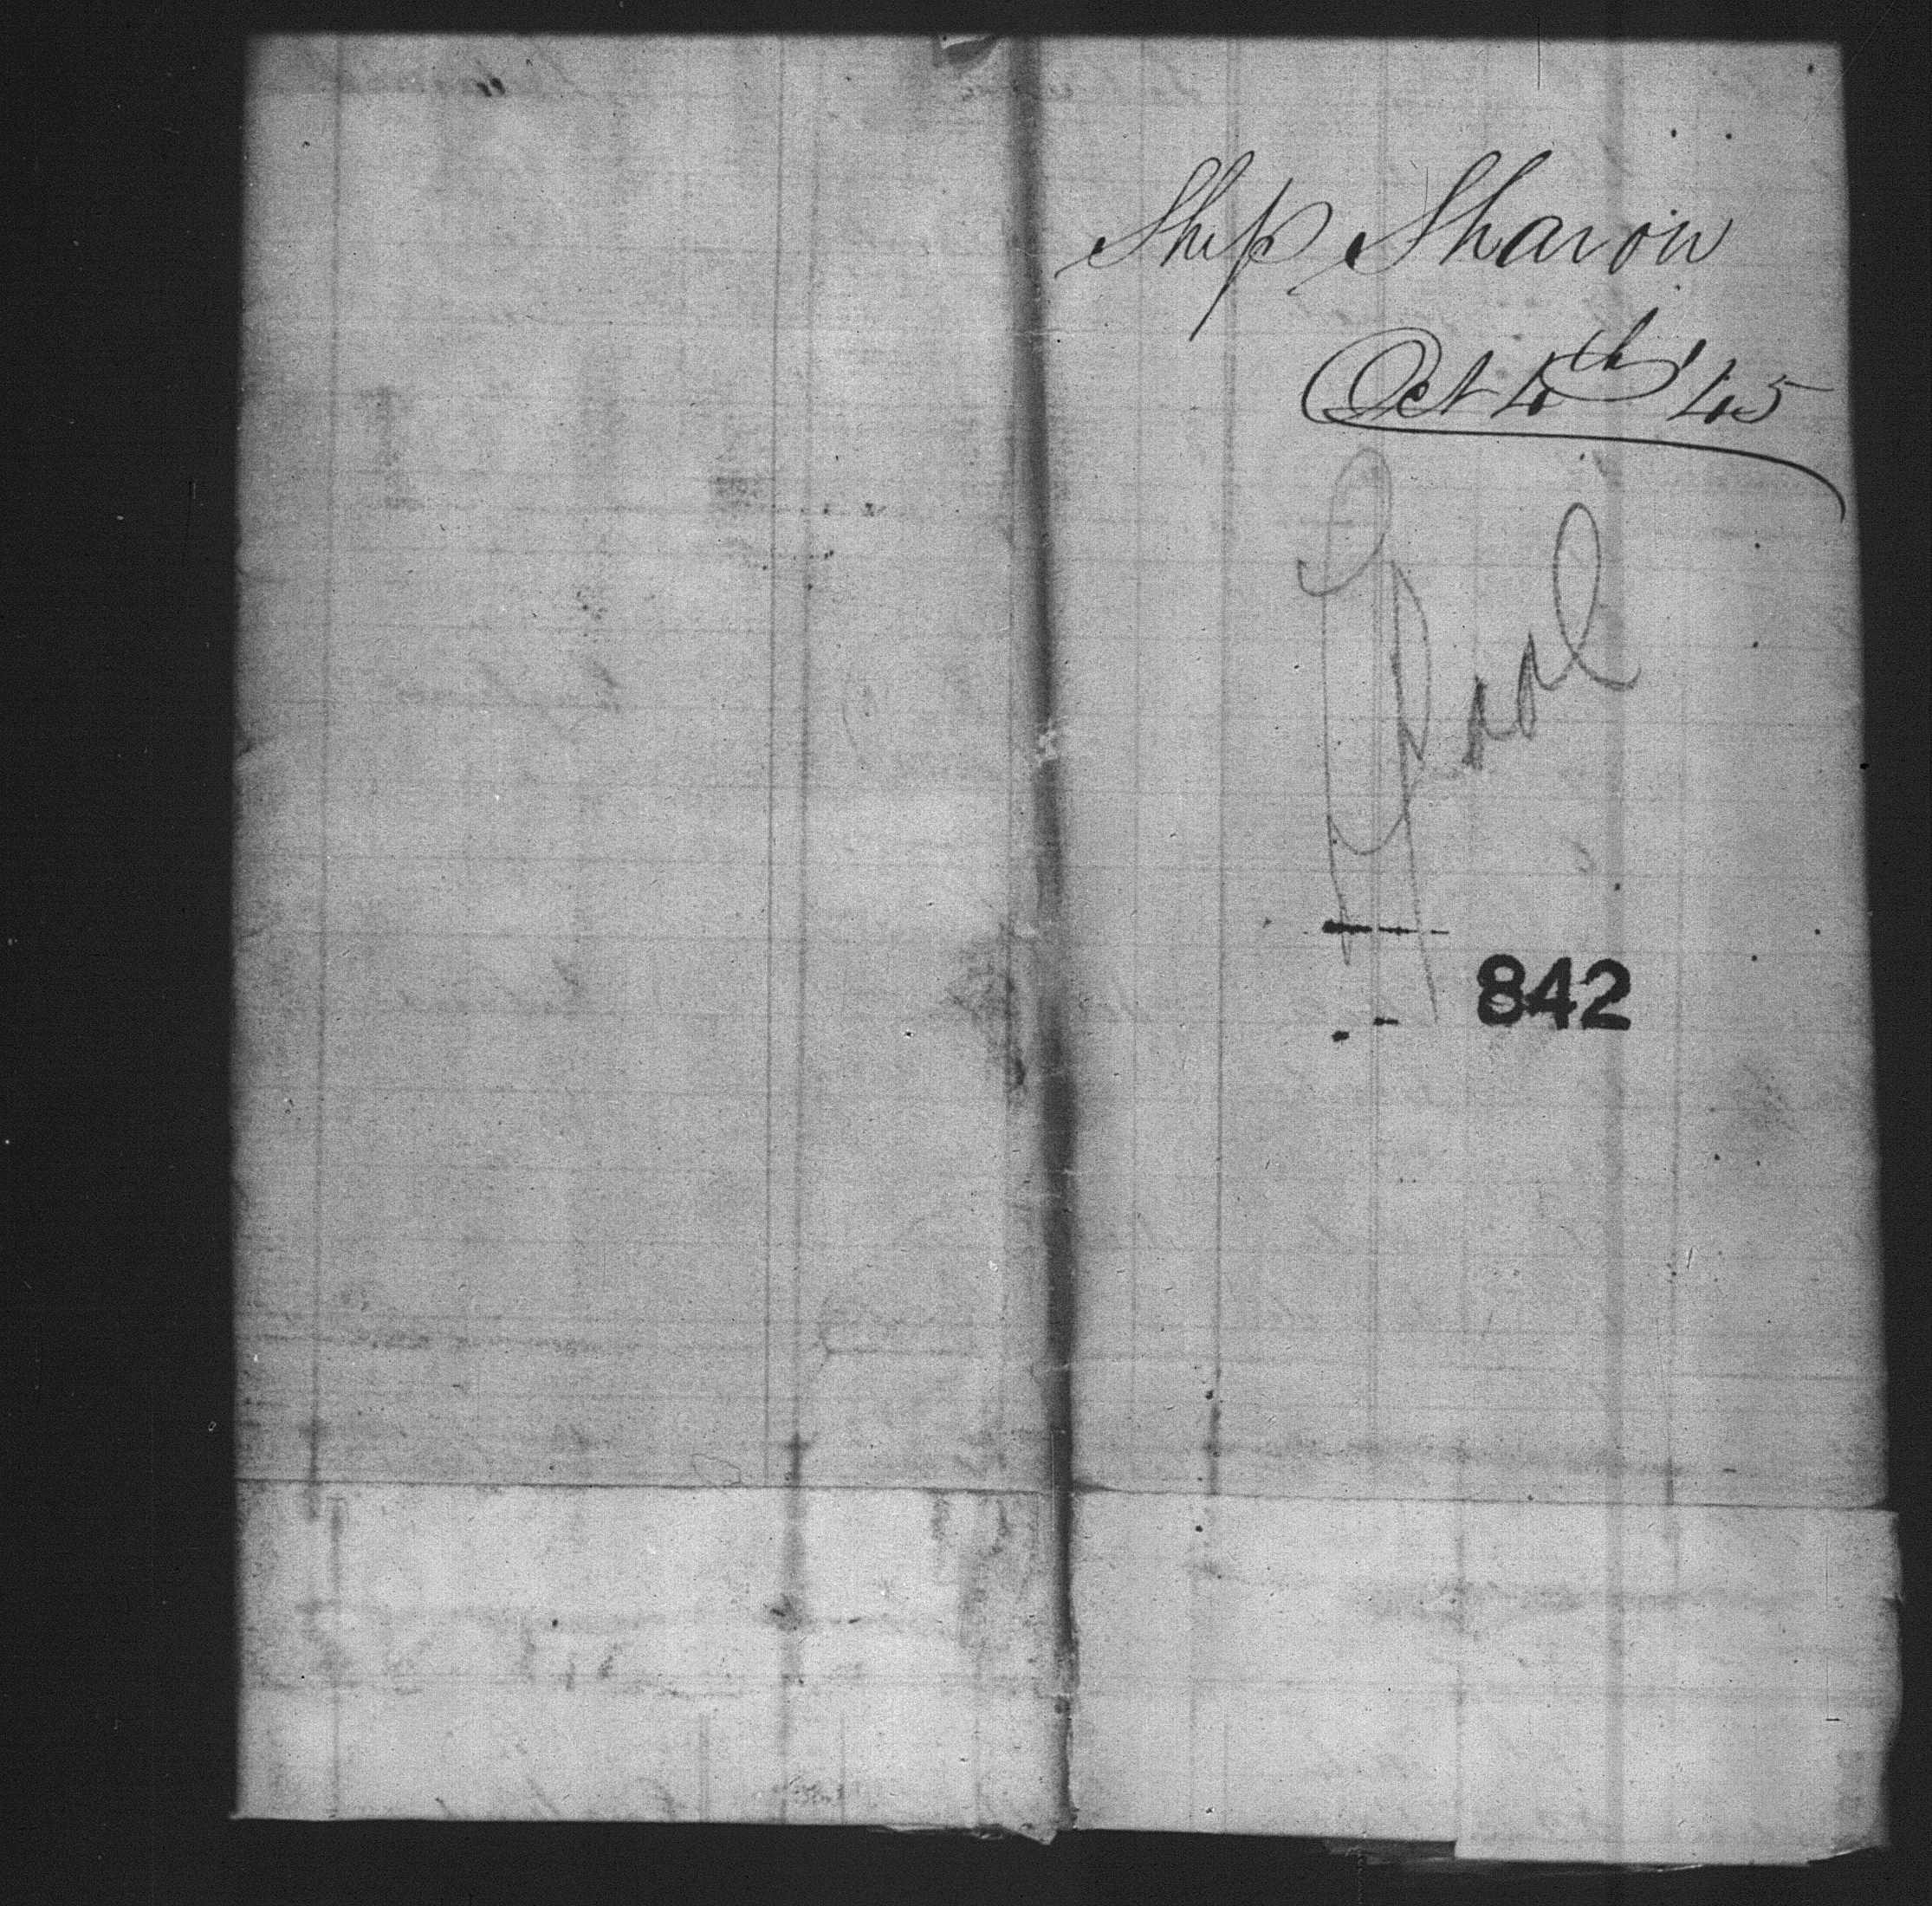 Ship Sharon
Oct 4th '45
842